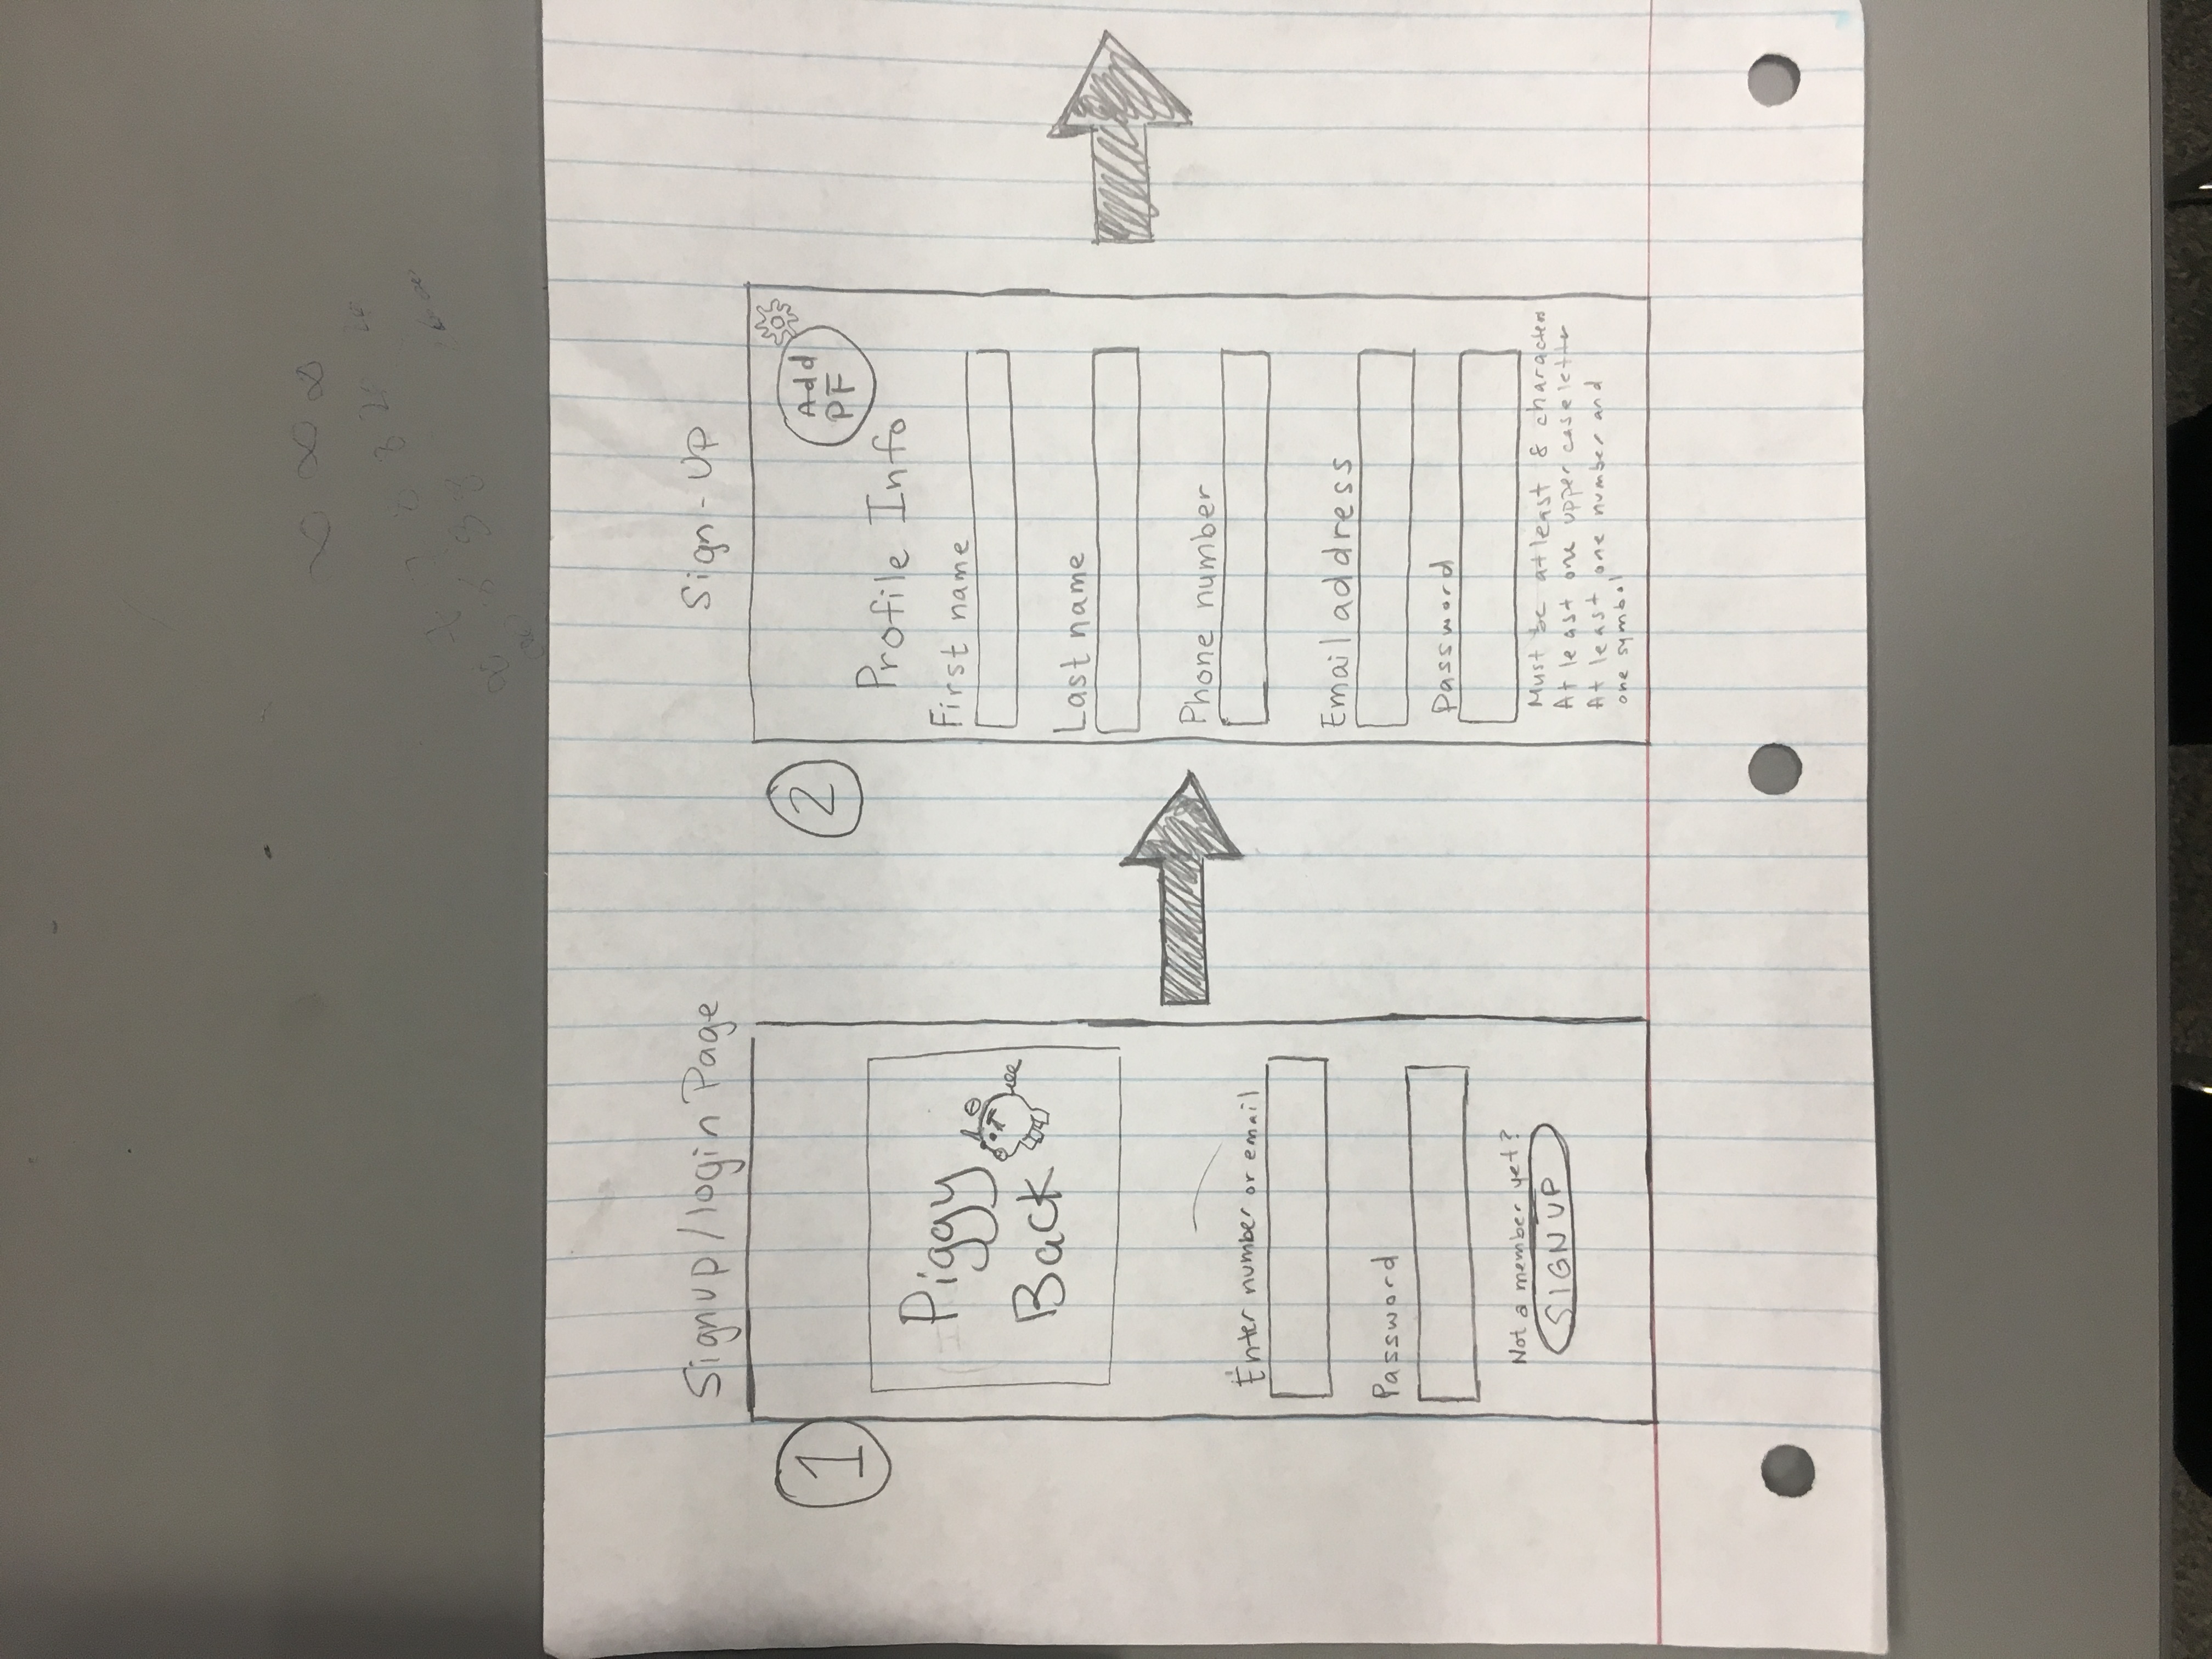 Signup/login Page
1
Piggy
Back
Enter number or email
Password
Not a member yet?
SIGN UP
Sign-Up
2
Add
PF
Profile Info
First name
Last name
Phone number
Email address
Password
Must be at least 8 characters
At least one upper case letter
At least one number and
one symbol